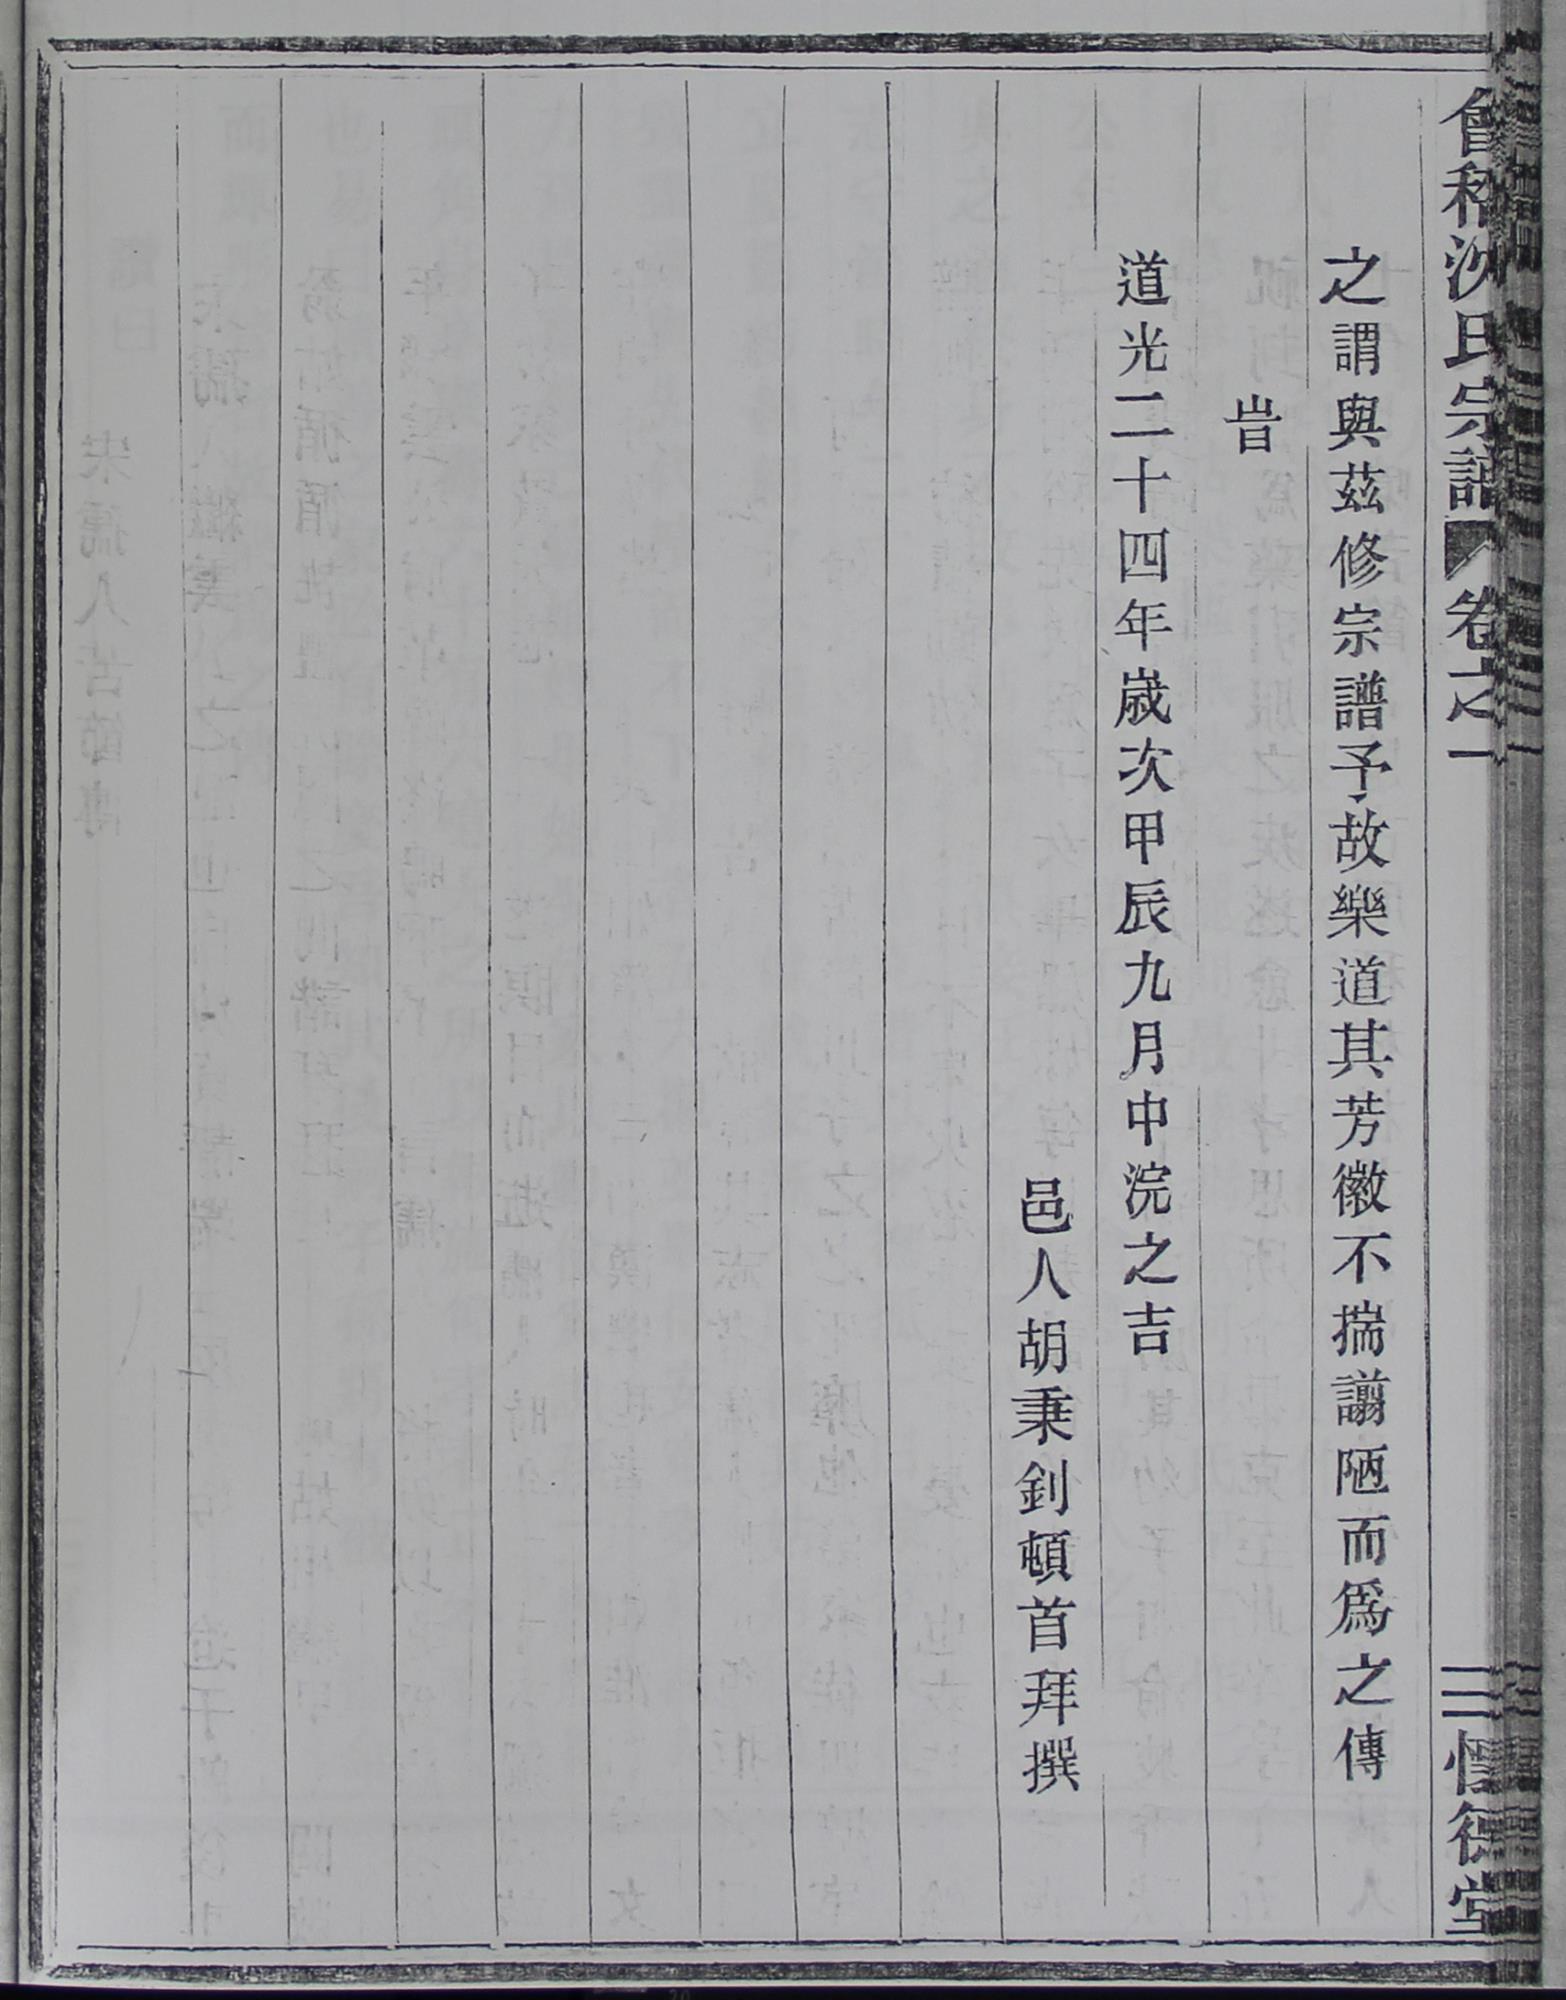 會稽沈氏宗譜 卷之一 三 德堂
之謂與茲修宗譜予故樂道其芳徽不揣謭陋而爲之傳
旹
道光二十四年歲次甲辰九月中浣之吉
邑人胡秉釗頓首拜撰